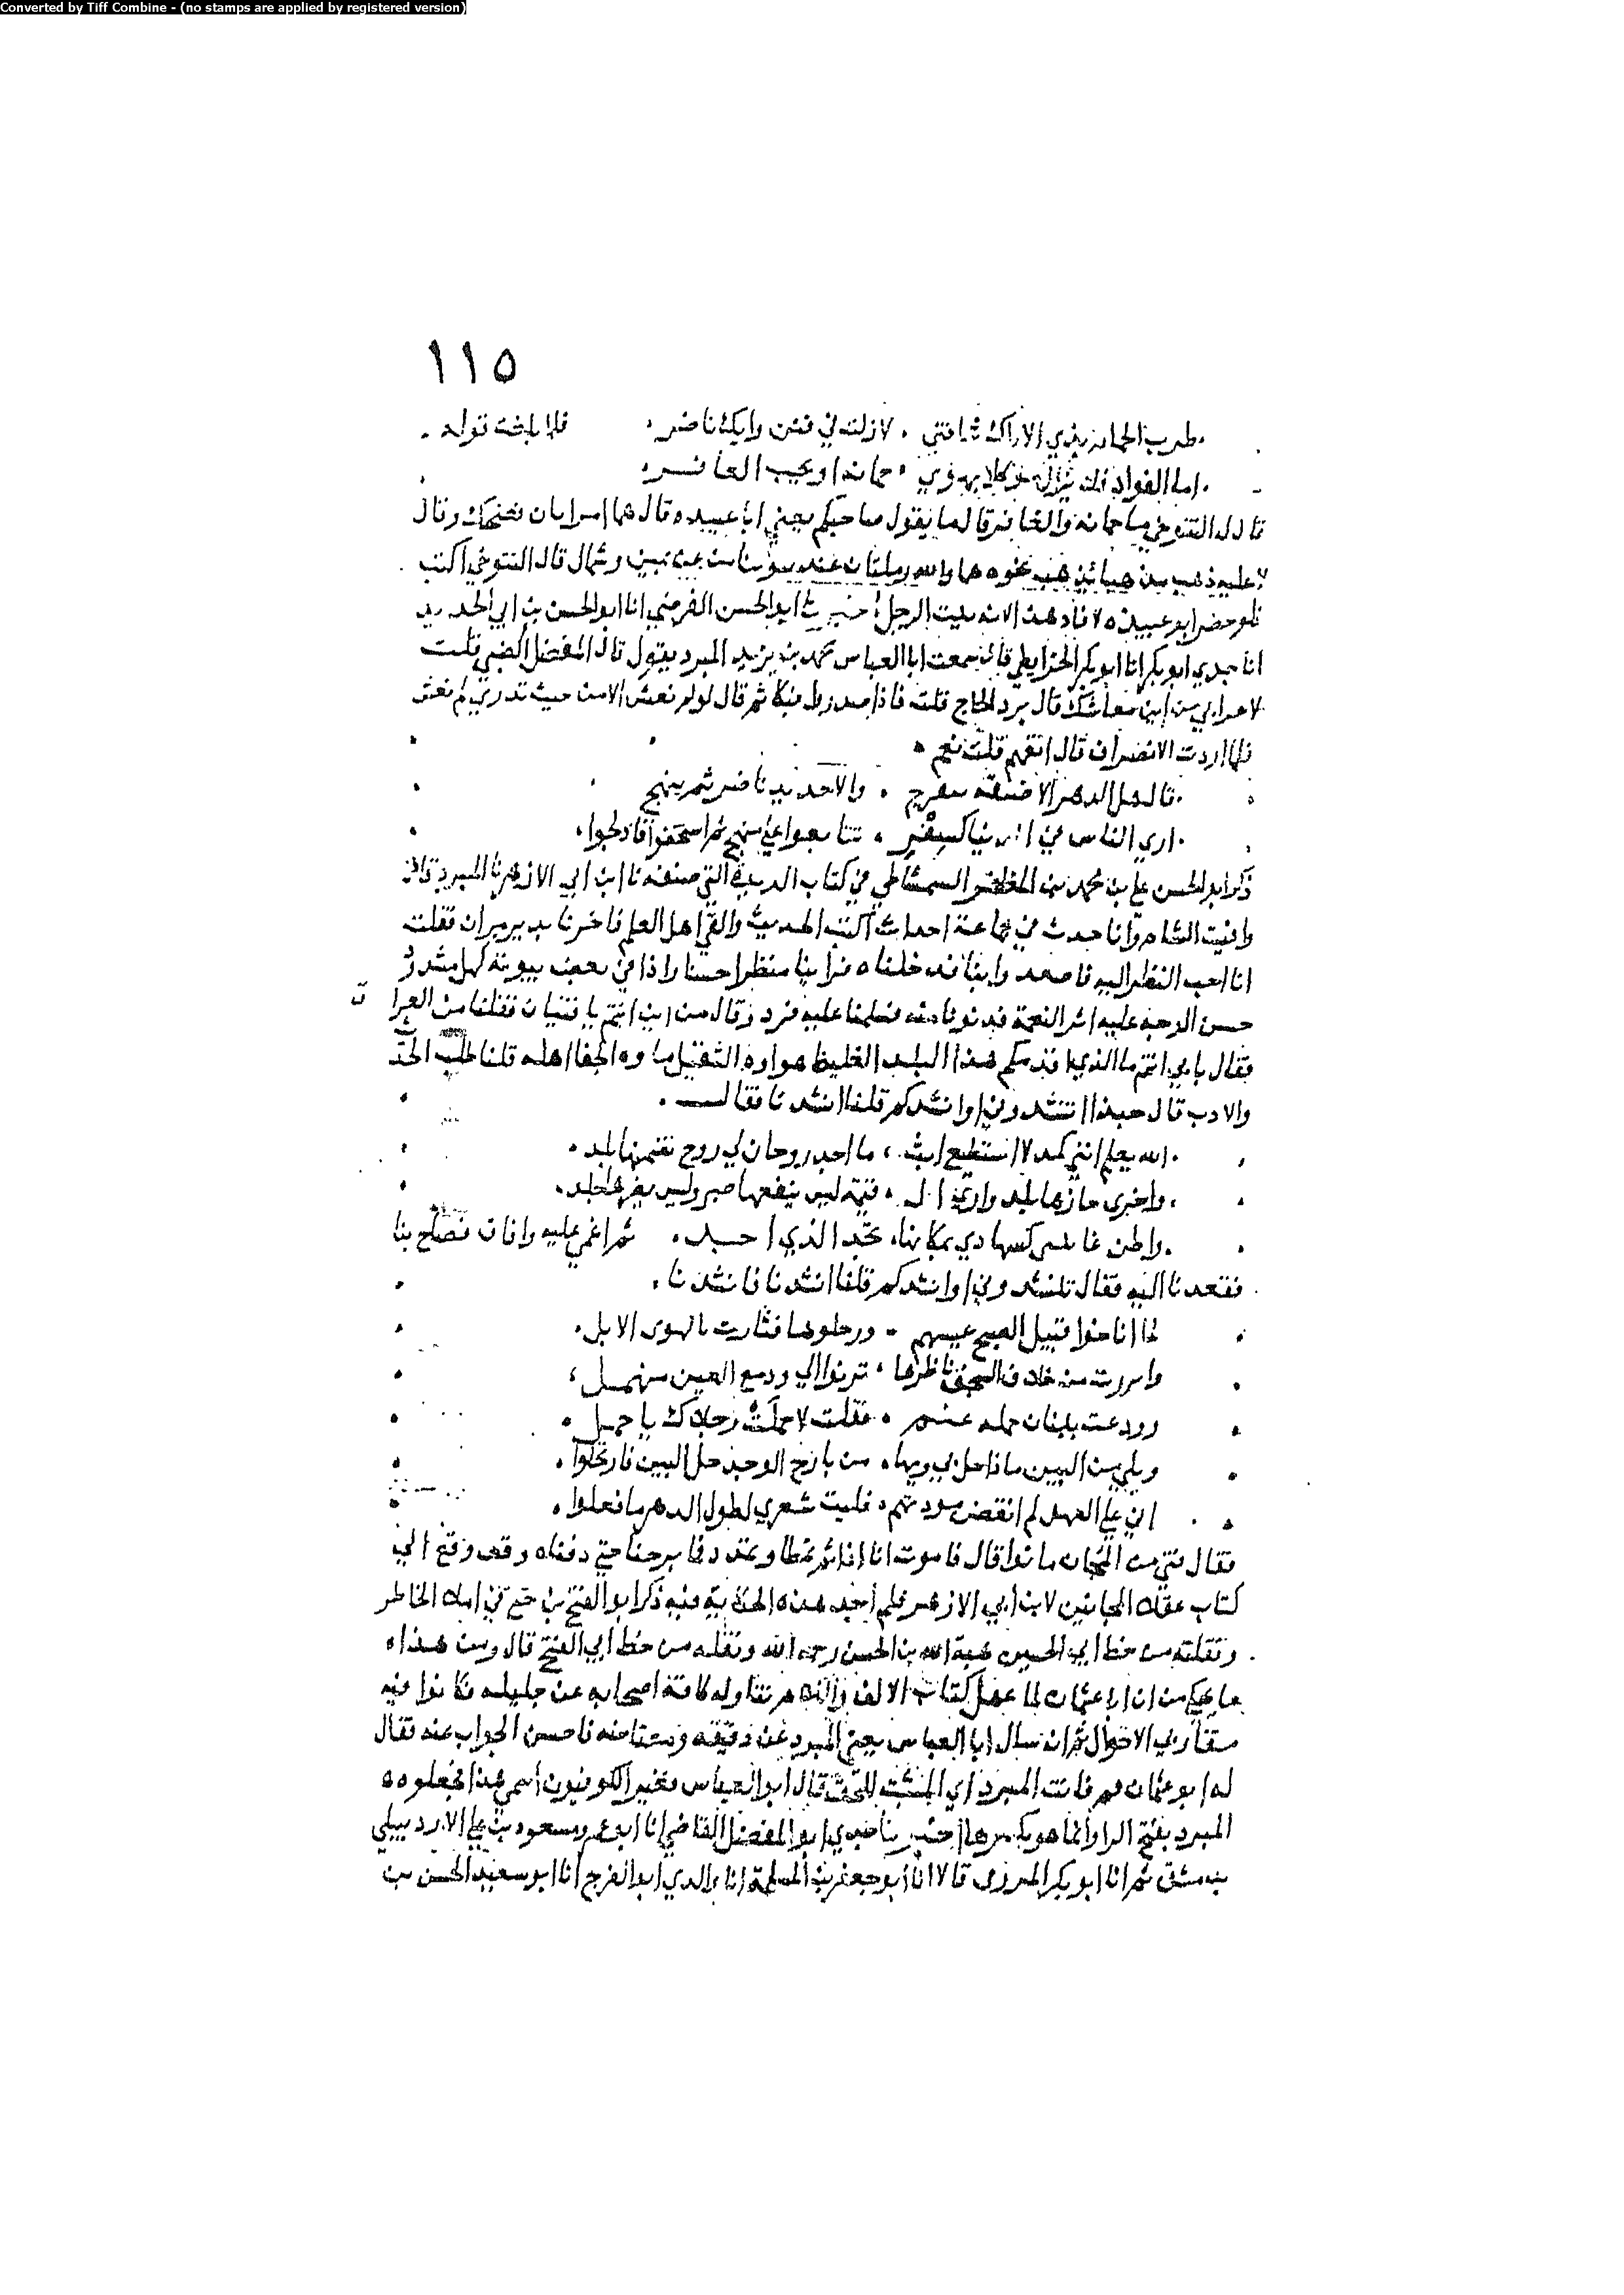 Converted by Tiff Combine - (no stamps are applied by registered version)
١١٥
طرب الحمام بذي الاراك فشاقني . لازلت في فنن وايك ناضر . فلما بلغت قوله .
اما الفواد فلن يزال موكلا بهوى حمامة او بحب العاقر
قال لي التنوخي ما حمامة والعاقر قال ما يقول صاحبكم يعني ابا عبيده قال هما امراتان فضحك وقال
والله رملتان عند بيوتنا من عن يمين وشمال قال التنوخي اكتب
فلو حضر ابو عبيده لافاد هذا لانه بيت الرجل ابو الحسن الفرضي انا ابو الحسن بن ابي الحديد
انا جدي ابو بكر انا ابو بكر الخرايطي قال سمعت ابا العباس محمد بن يزيد المبرد يقول قال المفضل الضبي قلت
لاعرابي من اين معاشك قال برد الحاج قلت فاذا صدروا فبكا ثم قال لو لم نعش الا من حيث ندري لم نعش
فلما اردت الانصراف قال اتفهم قلت نعم
هل الدهر الا ضيقة
اري الناس في الدنيا كسفر تتابعوا على منهج
ذكر ابو الحسن علي بن محمد بن المظفر السمشاطي في كتاب الديرة التي صنفه نا ابن ابي الازهر نا المبرد قال
وافيت الشام وانا حدث في جماعة احداث اكتب الحديث والقي اهل العلم فاخبرنا بدير مران فقلت
انا احب النظر اليه فاصعد وابنا فدخلناه فراينا منظرا حسنا واذا في بعض بيوته كهل مشدود
حسن الوجه عليه اثر النعمة فدنونا منه فسلمنا عليه فرد وقال من اين انتم يا فتيان فقلنا من العراق
فقال بابي انتم ما الذي اقدمكم هذا البلد الغليظ هواوه الثقيل ماوه الجفا اهله قلنا طلب الحديث
والادب قال حبذا اتنشدوني او انشدكم قلنا انشدنا فقال
الله يعلم انني كمد لا استطيع ابث ما اجد روحان لي روح تضمنها بلد
واخرى حازها بلد واري ليس ينفعها صبر وليس يضرها جلد
واظن غايبتي كشاهدي بمكانها تجد الذي اجد . ثم اغمي عليه وافاق فصاح بنا
فقعدنا اليه فقال تنشدوني او انشدكم قلنا انشدنا فانشدنا .
لما اناخوا قبيل الصبح عيسهم - ورحلوها فثارت بالهوى الابل .
وابرزت من خلاف السجف ناظرها ، ترنوا الي ودمع العين منهمل ،
وودعت ببنان حمله عنم . فقلت لا حملت رجلاك يا جمل .
ويلي من البين ماذا حل بي وبها . من بارح الوجد حل البين فارتحلوا .
اني على العهد لم انقض مودتهم . فليت شعري لطول الدهر ما فعلوا .
فقال فتى من المجان ماتوا قال فاموت انا اذا ثم تمطا وتمدد فما برحنا حتى دفناه وقع الي
كتاب عقلا المجانين لابن ابي الازهر فلم اجد هذه الحكاية فيه ذكر ابو الفتح بن جني
ونقلته من خط ابي الحسين هبة الله بن الحسن رحمه الله ونقله من خط ابي الفتح قال ومن هذا
ما يحكى من ان ابا عثمان لما عمل كتاب الالف واللام تناوله كافة اصحابه عن جليله فكانوا فيه
متقاربي الاحوال ثم انه سال ابا العباس يعني المبرد عن دقيقه فاحسن الجواب عنه فقال
له ابو عثمان قم فانت المبرد اي المثبت للحق قال ابو العباس فغير الكوفيون اسمي هذا فجعلوه
المبرد بفتح الرا وانما هو بكسرها اخبرنا جدي ابو المفضل القاضي انا ابو عمرو مسعود بن علي الاردبيلي
بدمشق ثم انا ابو بكر المزرفي قالا انا ابو جعفر بن المسلمة انا والدي ابو الفرج انا ابو سعيد الحسن بن